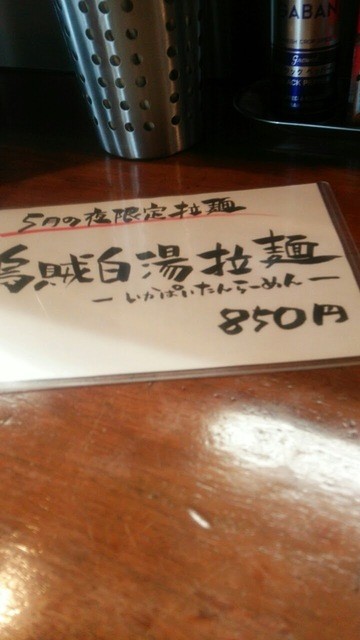 GABAN
5月の夜限定拉麺
烏賊白湯拉麺
ーいかぱいたんらーめんー
850円